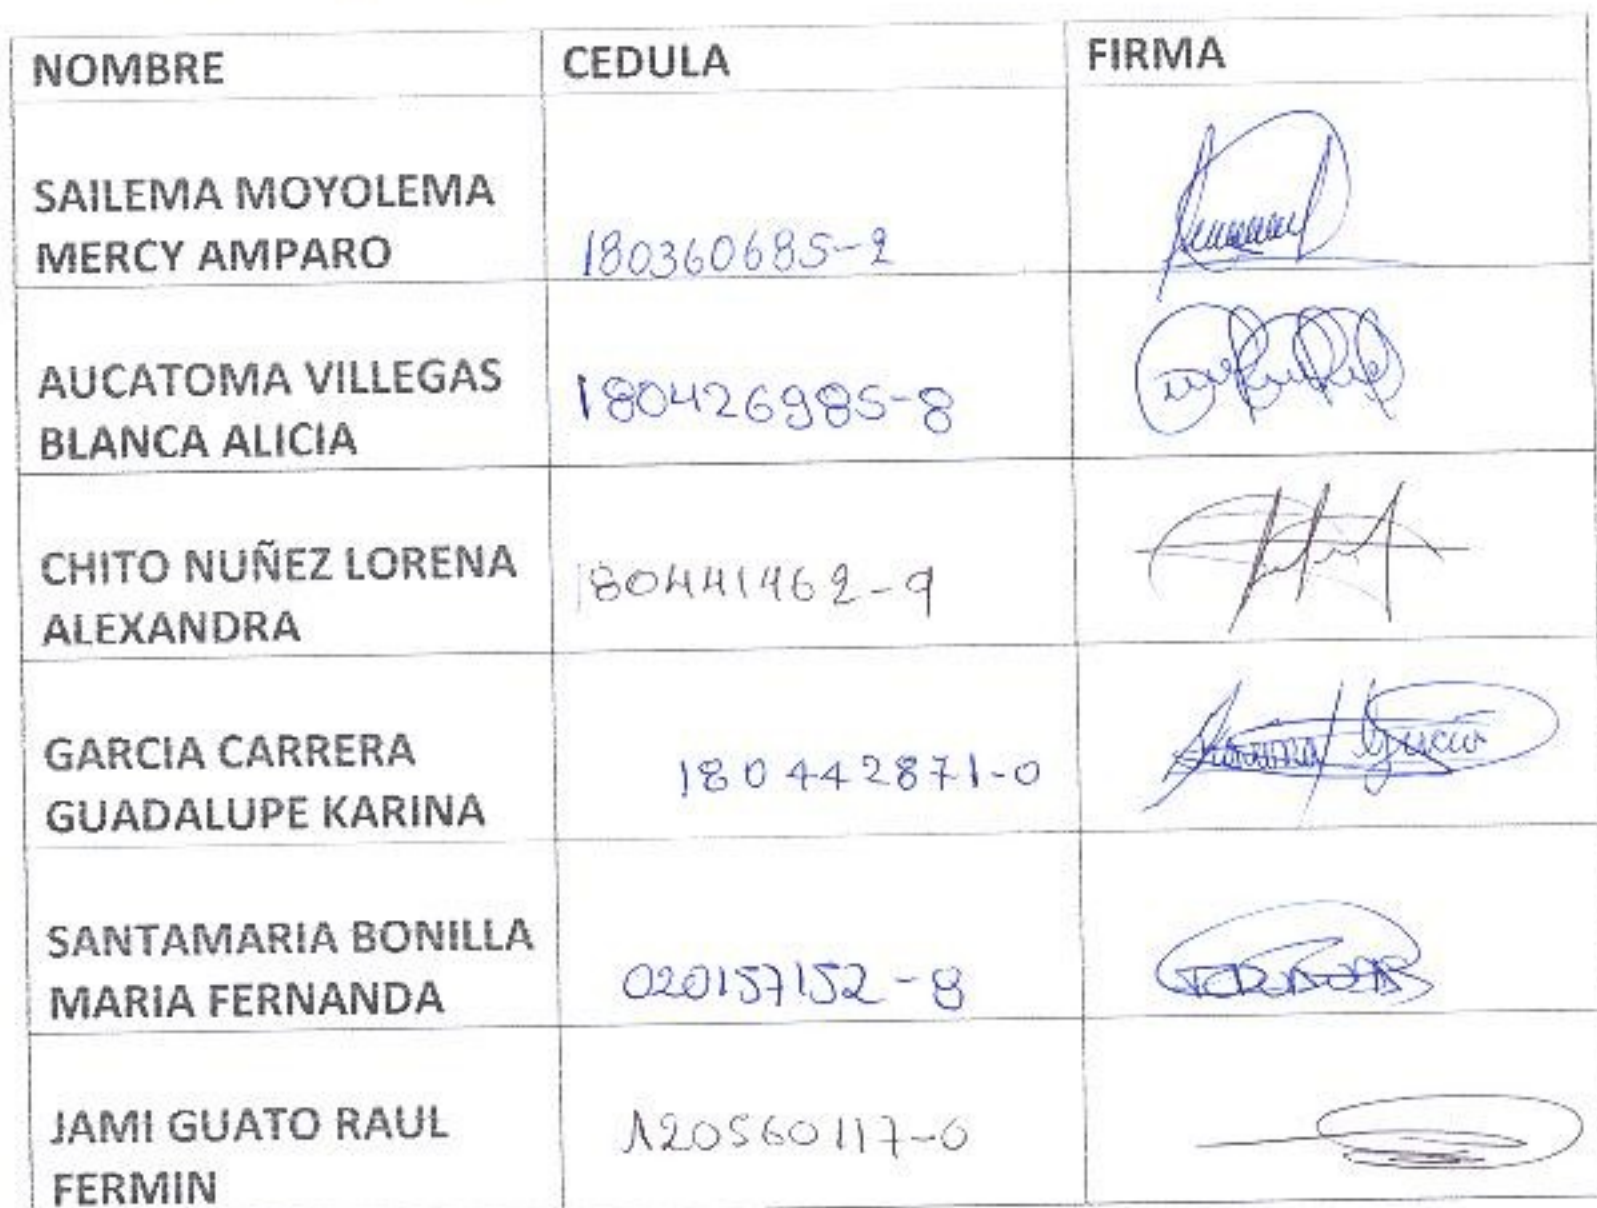 NOMBRE CEDULA FIRMA
SAILEMA MOYOLEMA
MERCY AMPARO 180360685-2
AUCATOMA VILLEGAS
BLANCA ALICIA 180426985-8
CHITO NUÑEZ LORENA
ALEXANDRA 180441462-9
GARCIA CARRERA
GUADALUPE KARINA 180442871-0
SANTAMARIA BONILLA
MARIA FERNANDA 020157152-8
JAMI GUATO RAUL
FERMIN 120560117-0